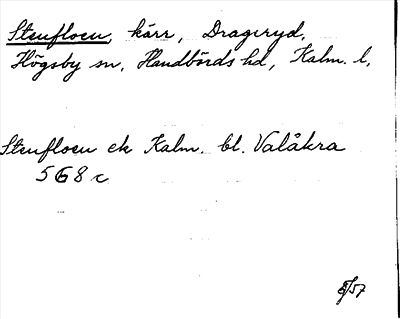 Stenfloen, kärr, Drageryd,
Högsby sn, Handbörds hd, Kalm. l.
Stenfloen ek Kalm. bl. Valåkra
568 c